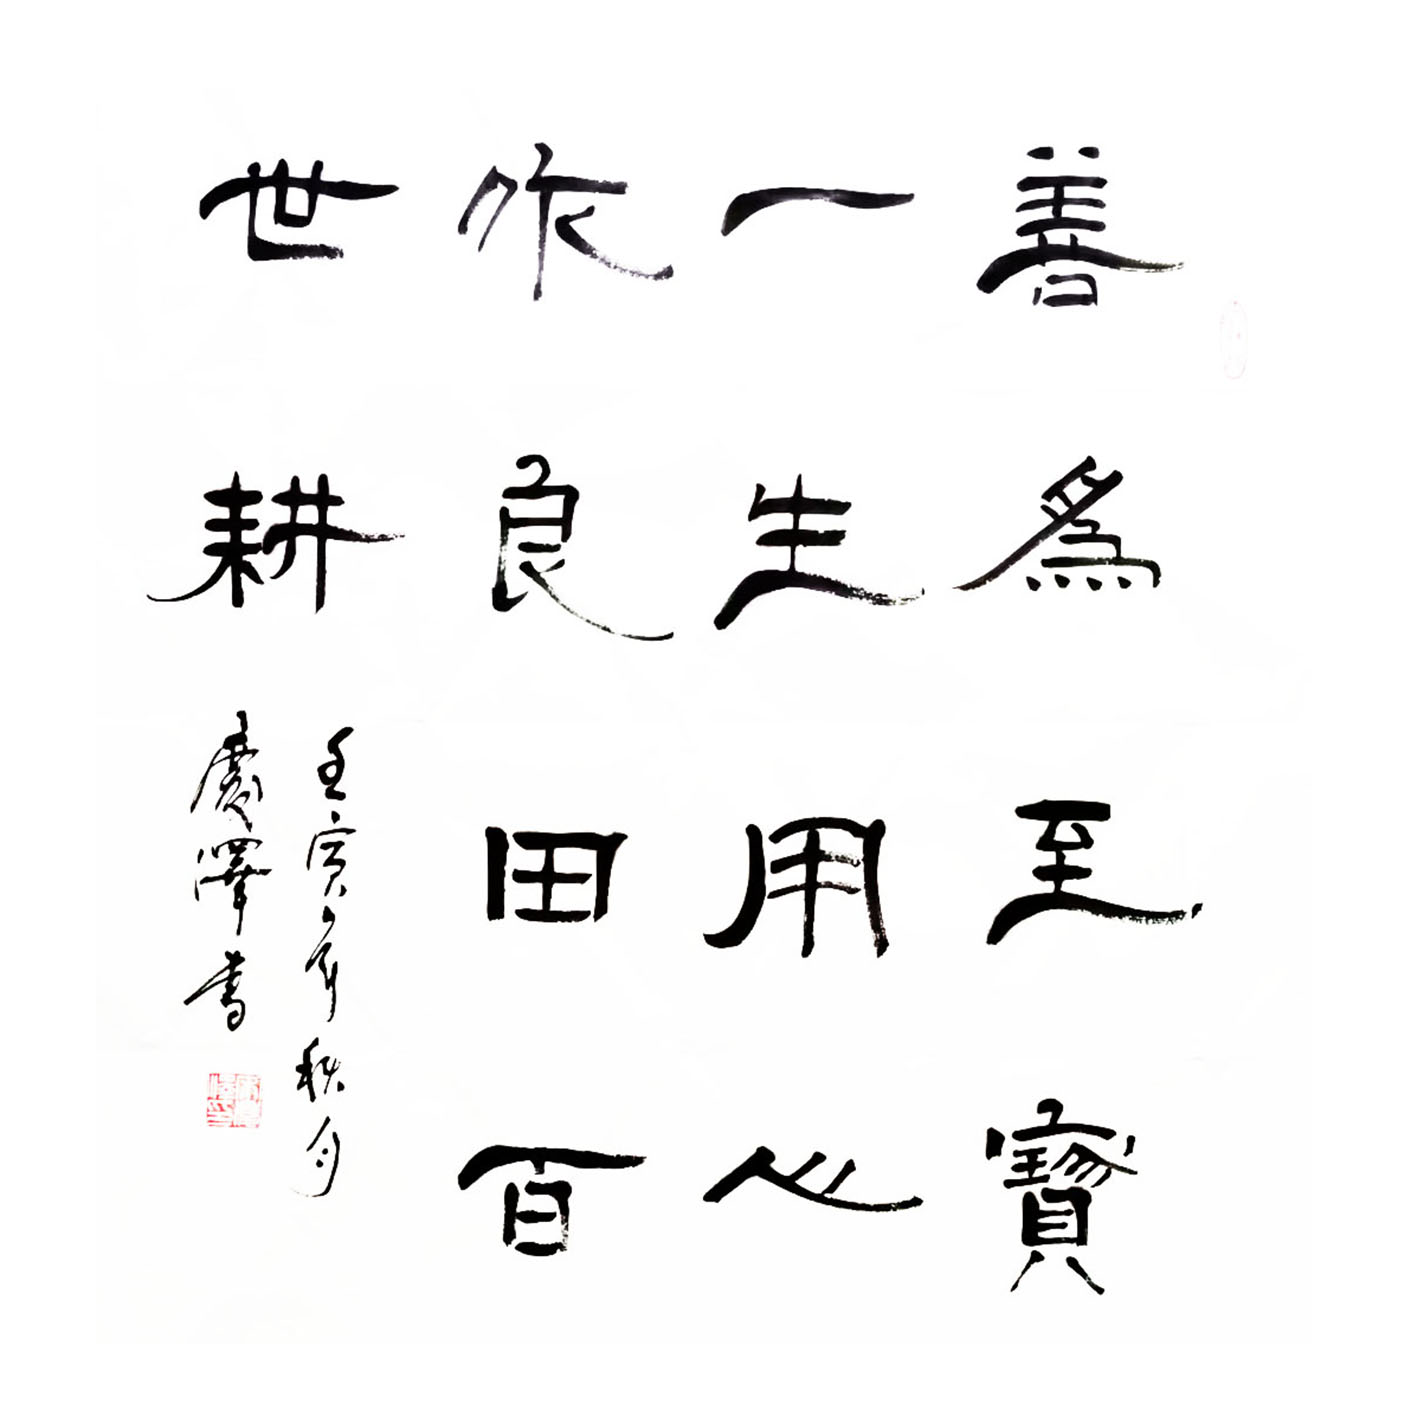 善為至寶
一生用心
作良田百
世耕
壬寅年秋月
慶澤書